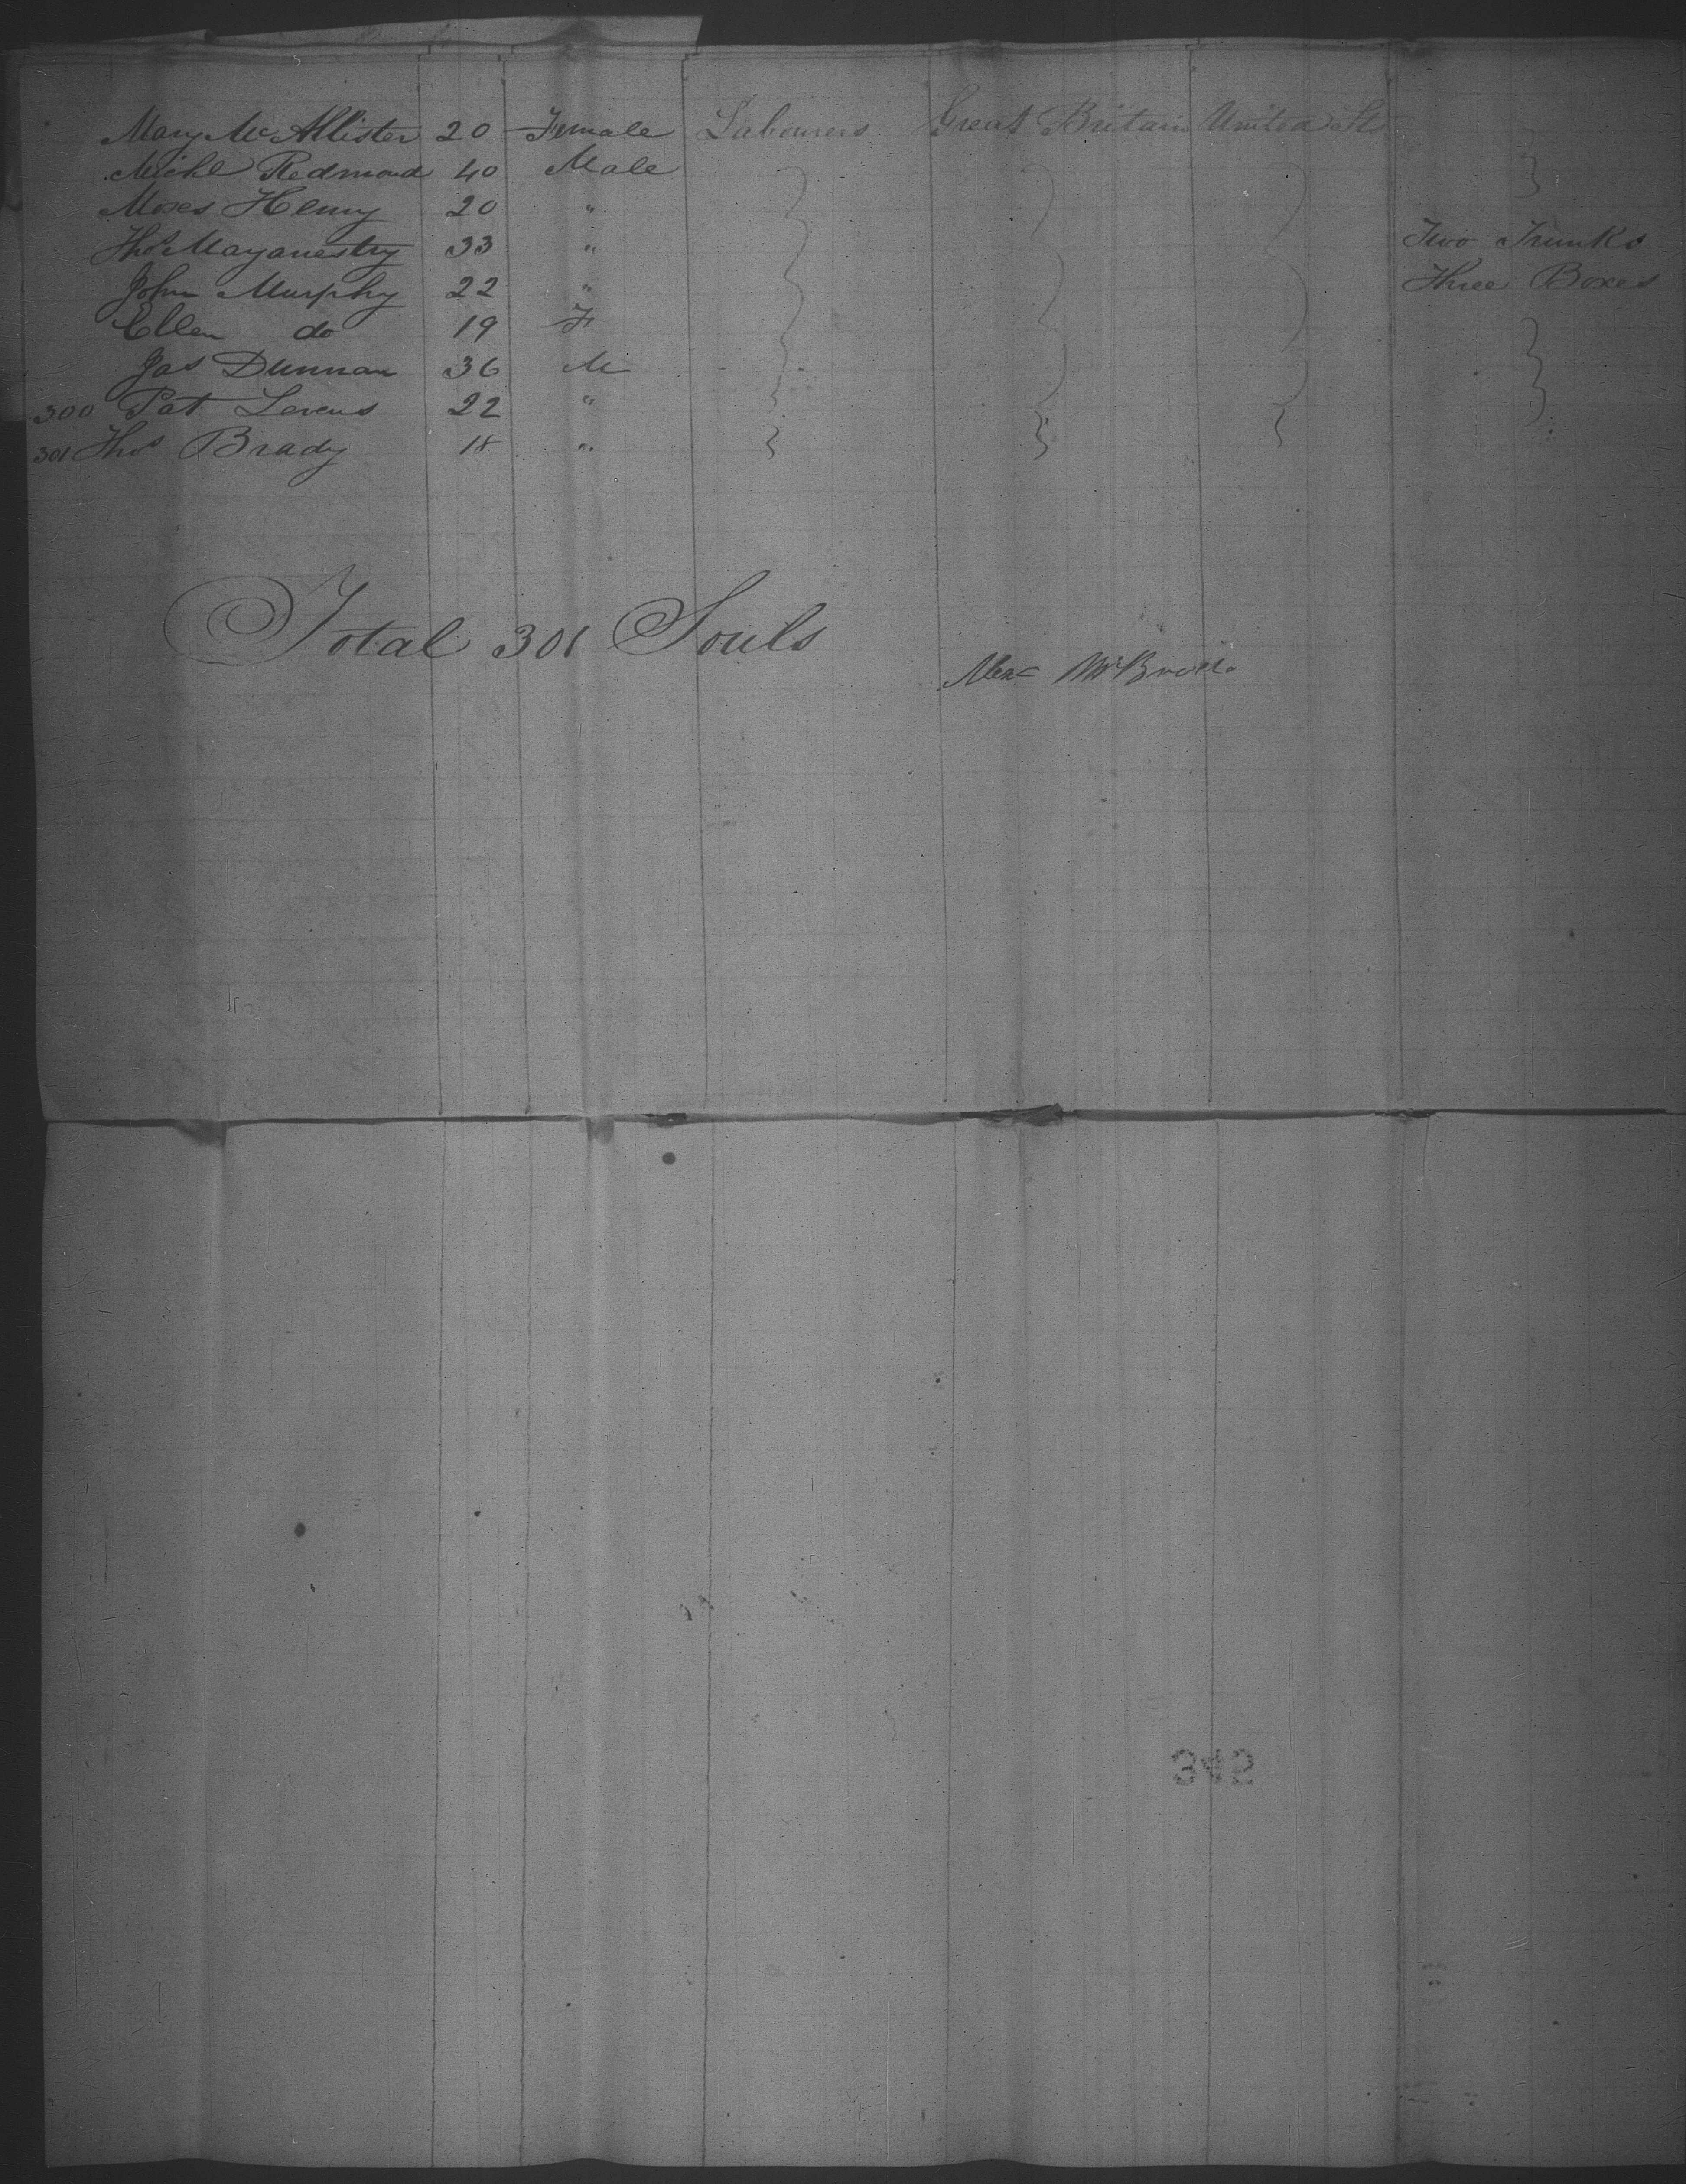 Mary McAllister 20 Female Labourers Great Britain United Sts
Michl Redmond 40 Male
Moses Henry 20 "
Thos 33 " Two Trunks
John Murphy 22 " Three Boxes
Ellen do 19 F
Jas Dunnan 36 M
300 Pat 22 "
301 Thos Brady 18 "
Total 301 Souls
342